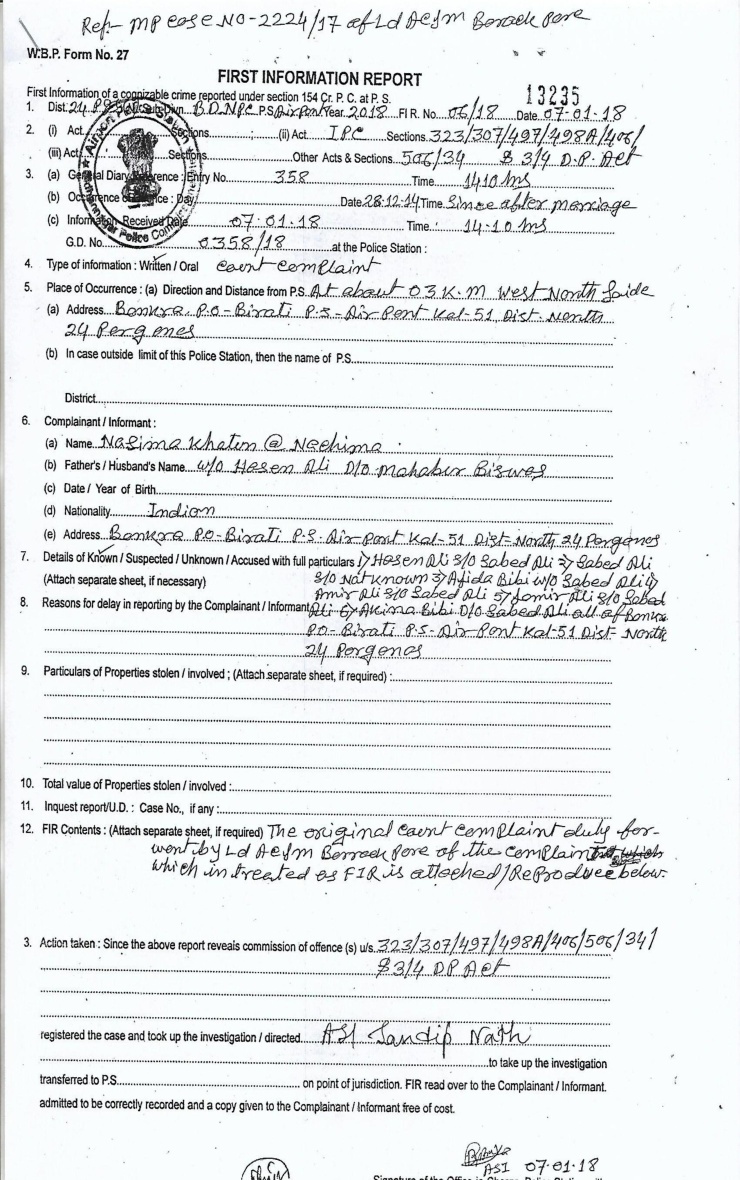 Ref- MP case NO-2224/17 of Ld ACJM Barrack Pore
W.B.P. Form No. 27
FIRST INFORMATION REPORT
First Information of a cognizable crime reported under section 154 Cr. P. C. at P. S.
13235
1. Dist. 24 PGS(N) Sub-Divn. B.D.N.P.C P.S. Airport Year 2018 FIR. No. 06/18 Date 07-01-18
2. (i) Act Sections (ii) Act IPC Sections 323/307/497/498A/406/
(iii) Act Sections Other Acts & Sections 506/34 & 3/4 D.P. Act
3. (a) General Diary Reference : Entry No. 358 Time 1410 hrs
(b) Occurrence of Offence : Day Date 28.12.14 Time Since after marriage
(c) Information Received Date 07.01.18 Time : 14-10 hrs
G.D. No. 0358/18 at the Police Station :
4. Type of information : Written / Oral Court Complaint
5. Place of Occurrence : (a) Direction and Distance from P.S. At about 03 K.M West North Saide
(a) Address Bankra P.O-Birati P.S-Air-Port Kal-51 Dist- North
24 Pargenes
(b) In case outside limit of this Police Station, then the name of P.S.
District
6. Complainant / Informant :
(a) Name Nasima Khatun @ Nechima
(b) Father's / Husband's Name W/o Hasen Ali D/o Mahabur Biswas
(c) Date / Year of Birth
(d) Nationality Indian
(e) Address Bankra PO-Birati P.S-Air-Port Kal-51 Dist-North 24 Pargenes
7. Details of Known / Suspected / Unknown / Accused with full particulars 1) Hasen Ali S/O Sabed Ali 2) Sabed Ali
(Attach separate sheet, if necessary) S/O Not known 3) Afida Bibi W/o Sabed Ali 4)
Amir Ali S/O Sabed Ali 5) Jamir Ali S/O Sabed
8. Reasons for delay in reporting by the Complainant / Informant Ali 6) Akima Bibi D/O Sabed Ali all of Bankra
PO-Birati P.S-Air-Port Kal-51 Dist- North
24 Pargenes
9. Particulars of Properties stolen / involved ; (Attach separate sheet, if required) :
10. Total value of Properties stolen / involved :
11. Inquest report/U.D. : Case No., if any :
12. FIR Contents : (Attach separate sheet, if required) The original Court Complaint duly for-
went by Ld ACJM Barrack Pore of the Complaint
which in treated as FIR is attached/Reproduce below.
3. Action taken : Since the above report reveals commission of offence (s) u/s. 323/307/497/498A/406/506/34/
& 3/4 DP Act
registered the case and took up the investigation / directed ASI Sandip Nath
to take up the investigation
transferred to P.S. on point of jurisdiction. FIR read over to the Complainant / Informant.
admitted to be correctly recorded and a copy given to the Complainant / Informant free of cost.
ASI 07-01-18